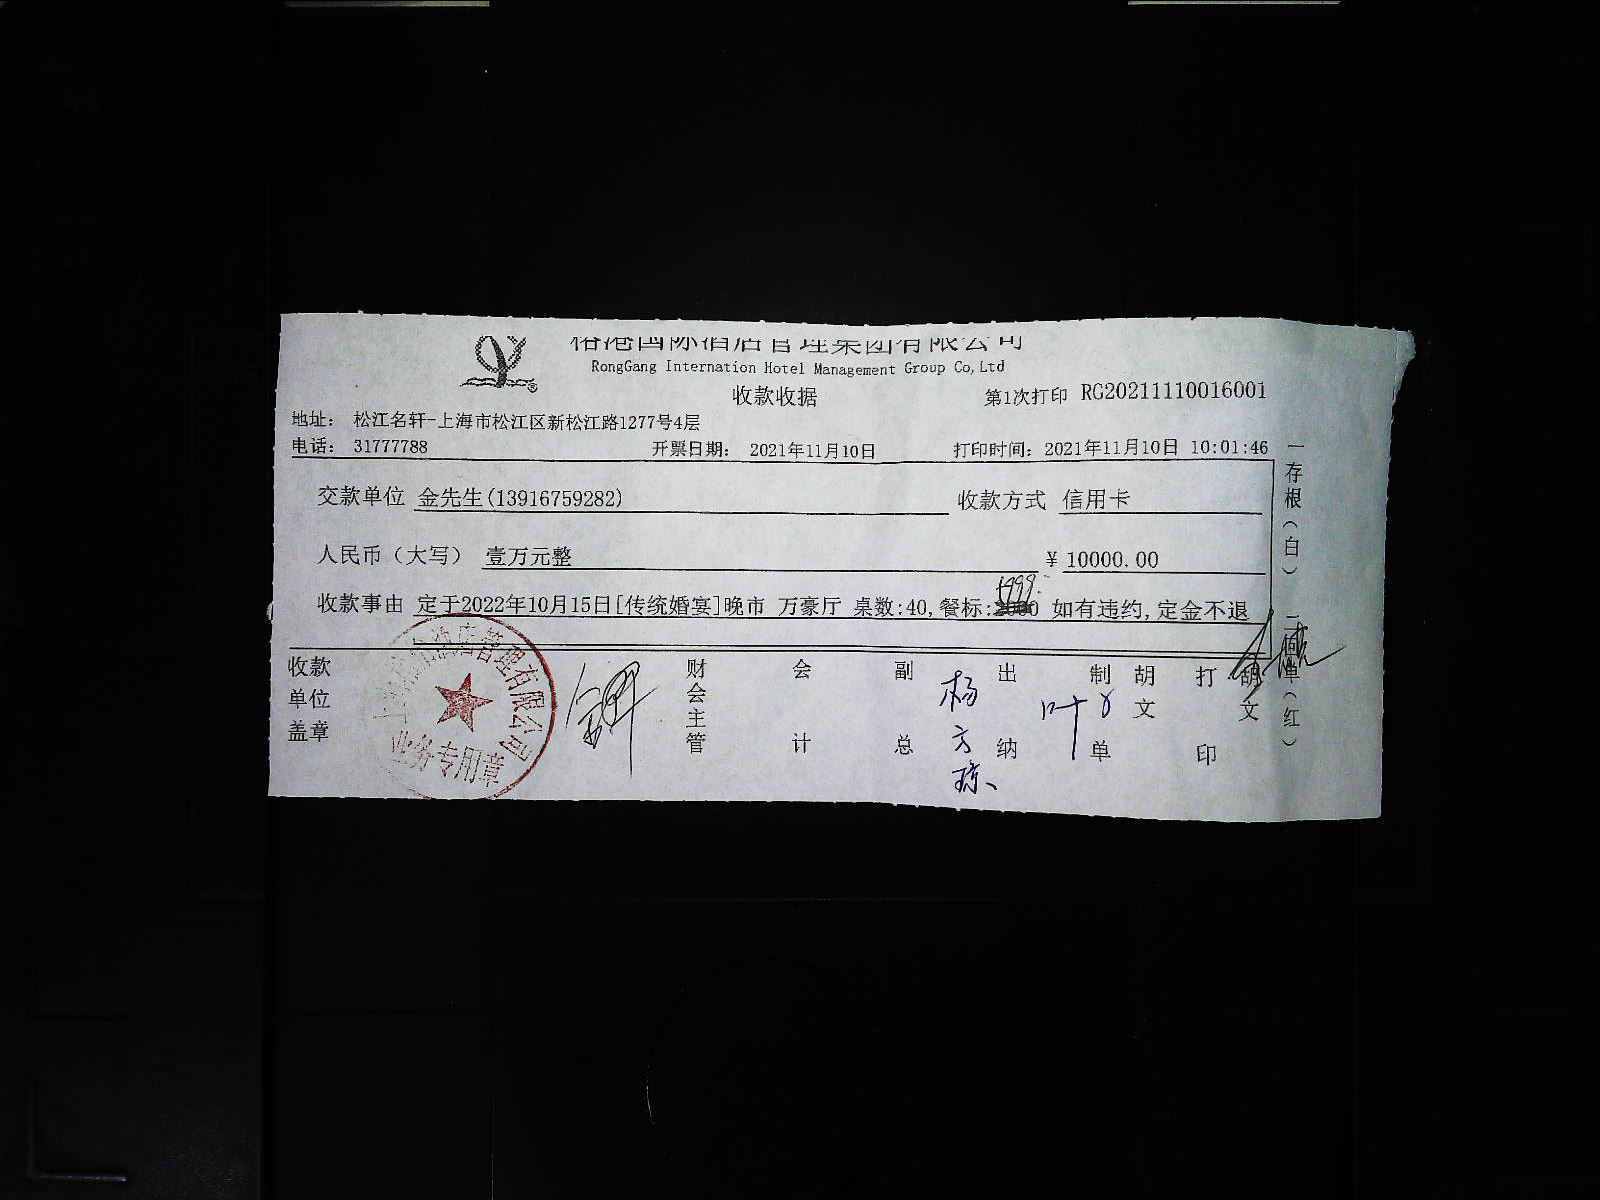 国际酒店管理集团有限公司
RongGang Internation Hotel Management Group Co,Ltd
收款收据
第1次打印 RG20211110016001
地址: 松江名轩-上海市松江区新松江路1277号4层
电话: 31777788 开票日期: 2021年11月10日 打印时间: 2021年11月10日 10:01:46
交款单位 金先生(13916759282) 收款方式 信用卡
人民币(大写) 壹万元整 ¥ 10000.00
1999
收款事由 定于2022年10月15日[传统婚宴]晚市 万豪厅 桌数:40,餐标: 如有违约,定金不退
收款单位盖章
酒店管理有限公司
业务专用章
财会主管
会计
副总
杨方琼
出纳
叶
制单
胡文
打印
胡文
一存根(白) 二回单(红)